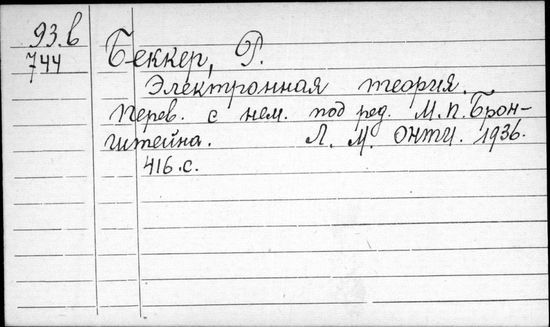 93.в
744
Беккер, Р.
Электронная теория.
Перев. с нем. под ред. М.П. Брон-
штейна. Л. М. ОНТИ. 1936.
416.с.